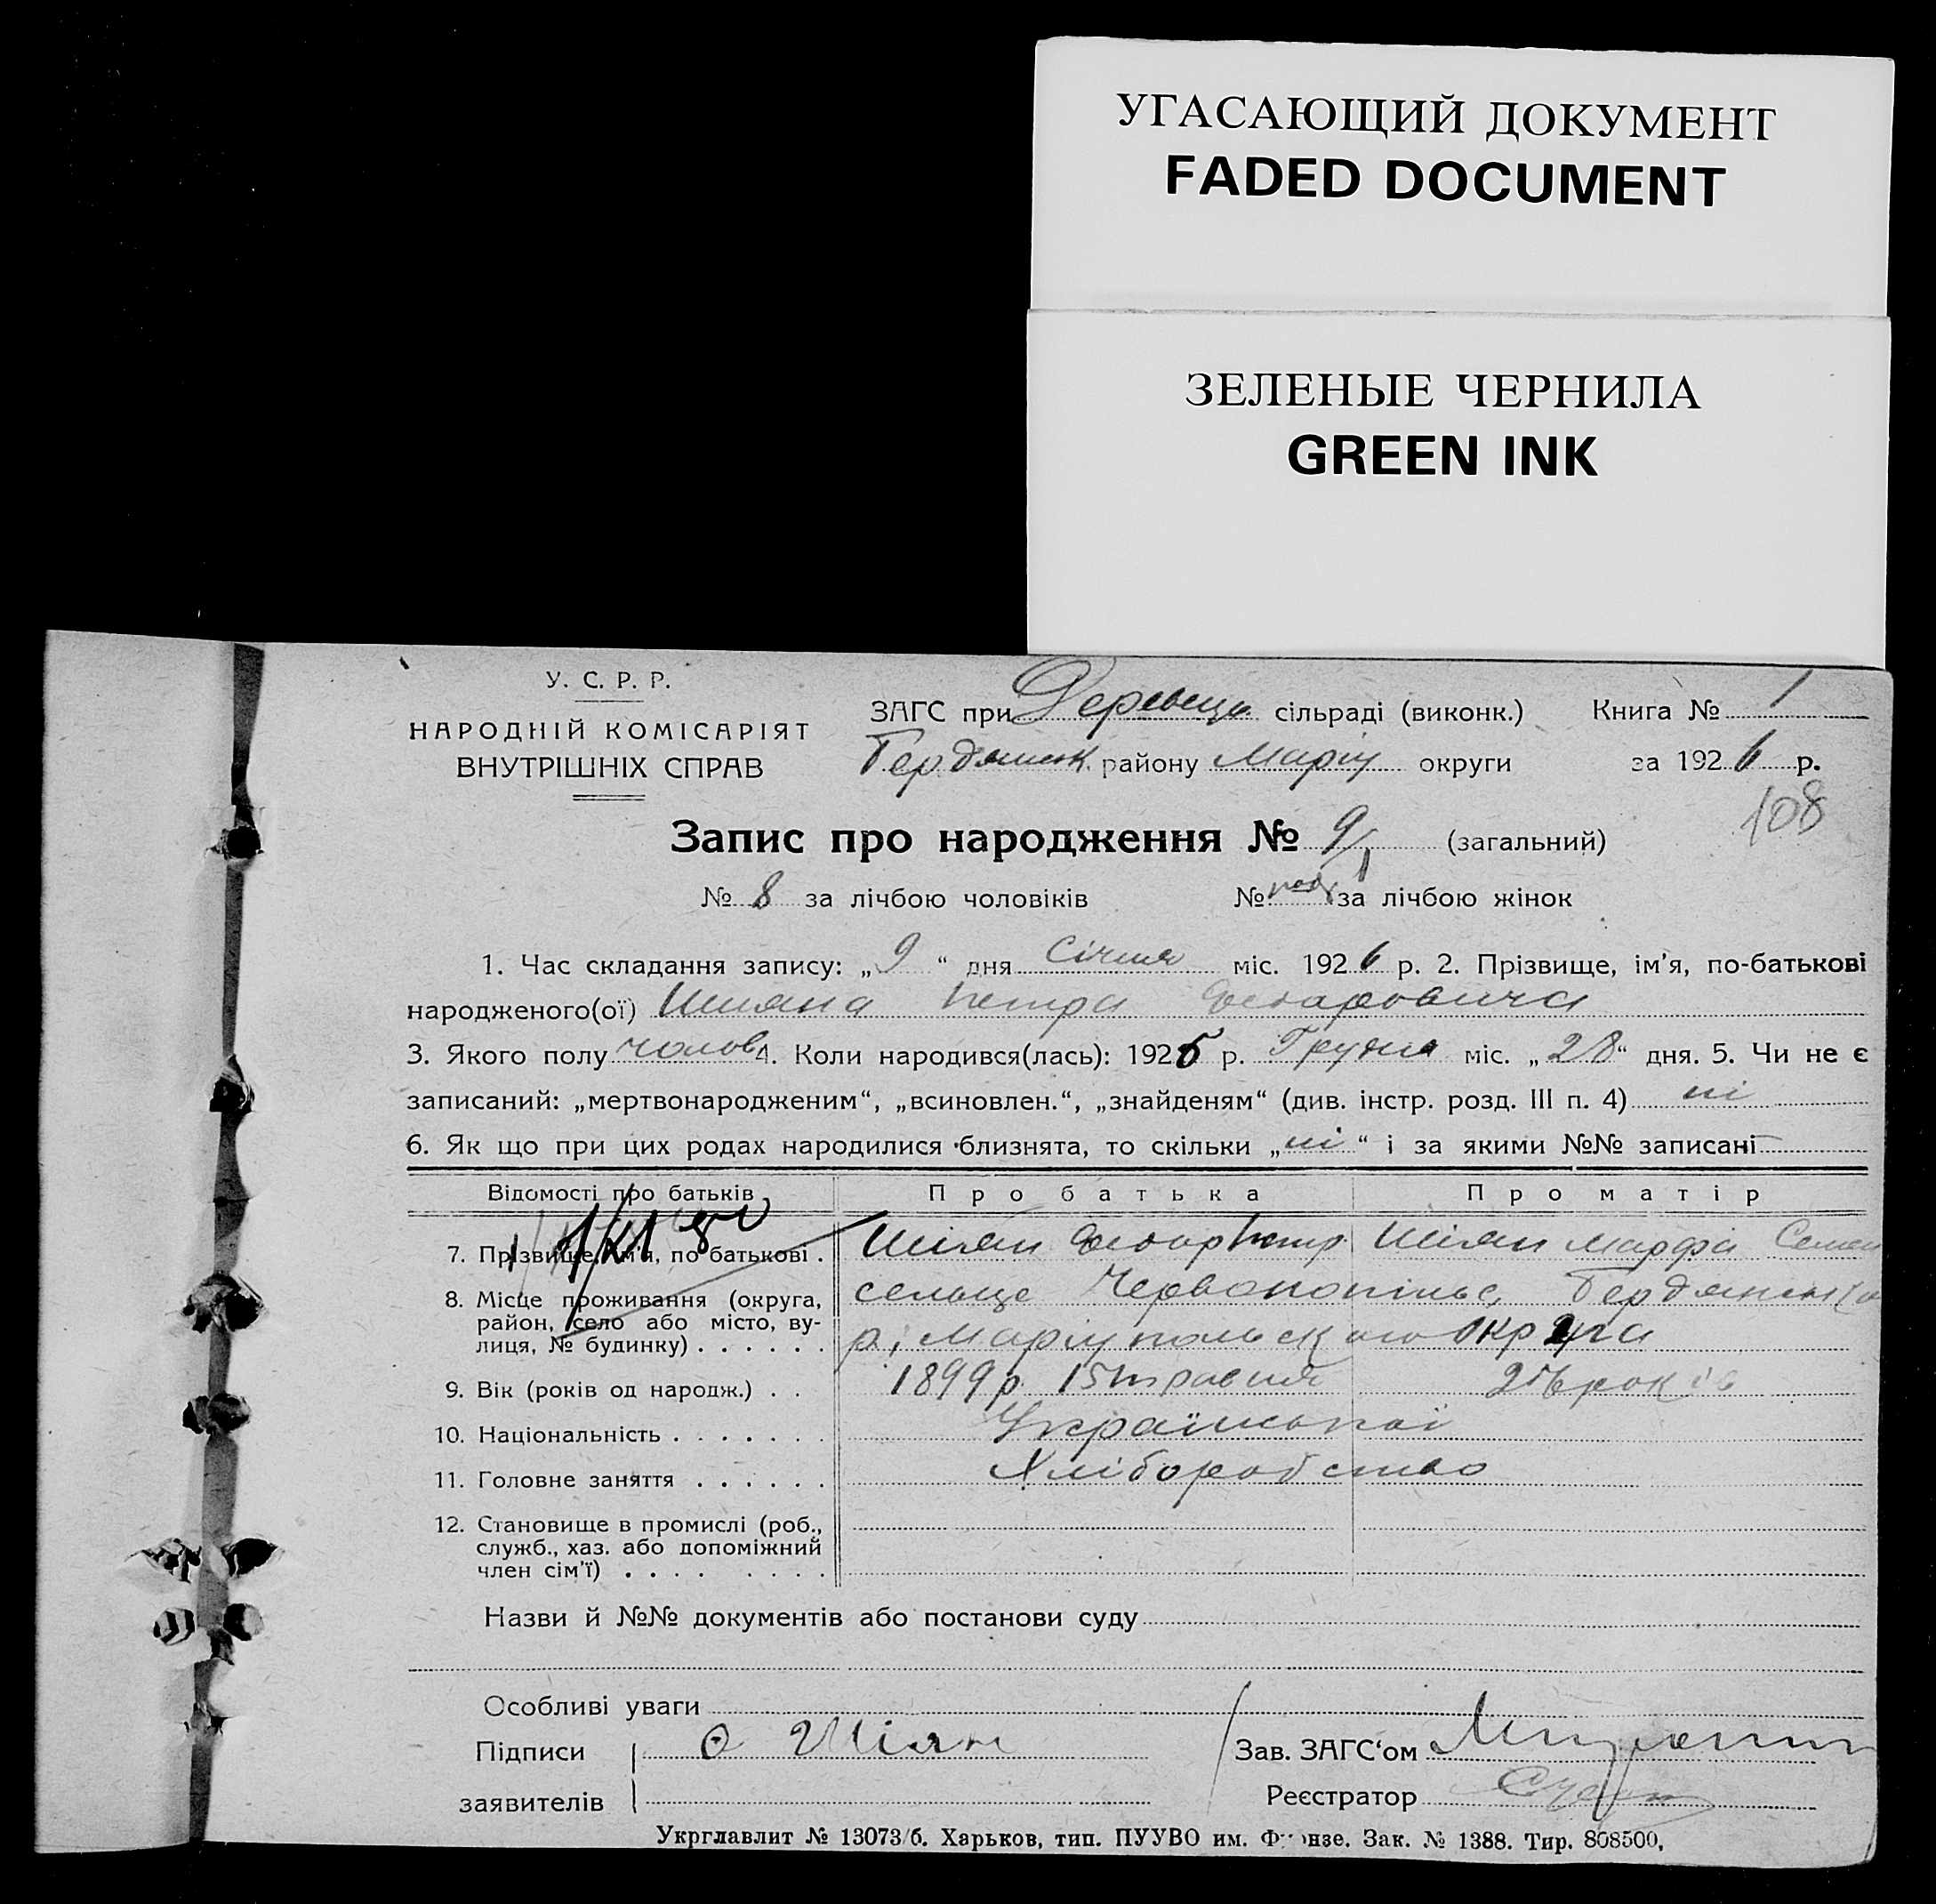 УГАСАЮЩИЙ ДОКУМЕНТ
FADED DOCUMENT
ЗЕЛЕНЫЕ ЧЕРНИЛА
GREEN INK
У. С. Р. Р.
НАРОДНІЙ КОМІСАРІЯТ
ВНУТРІШНІХ СПРАВ
ЗАГС при сільраді (виконк.) Книга № 1
Бердянськ. району Маріу округи за 1926 р.
108
Запис про народження № 9/1 (загальний)
№ 8 за лічбою чоловіків № за лічбою жінок
1. Час складання запису: „9“ дня Січня міс. 1926 р. 2. Прізвище, ім’я, по-батькові
народженого(ої) Шияна Петра
3. Якого полу чолов 4. Коли народився(лась): 1925 р. Грудня міс. „28“ дня. 5. Чи не є
записаний: „мертвонародженим“, „всиновлен.“, „знайденям“ (див. інстр. розд. III п. 4) ні
6. Як що при цих родах народилися близнята, то скільки „ні“ і за якими №№ записані
Відомості про батьків Про батька Про матір
7. Прізвище, ім’я, по батькові . Шіян Петр. Шіян Марфа Семен
8. Місце проживання (округа, район, село або місто, вулиця, № будинку) . . . . . . селище Червонопільс, Бердянськ
р, Маріупольского округа
9. Вік (років од народж.) . . 1899 р. 15 травня 26 років
10. Національність . . . . . . . Української
11. Головне заняття . . . . . . Хліборобство
12. Становище в промислі (роб.,
служб., хаз. або допоміжний
член сім’ї) . . . . . . . .
Назви й №№ документів або постанови суду
Особливі уваги
Підписи Ѳ Шіян Зав. ЗАГС‘ом
заявителів Реєстратор
Укрглавлит № 13073/б. Харьков, тип. ПУУВО им. Фрунзе. Зак. № 1388. Тир. 808500,